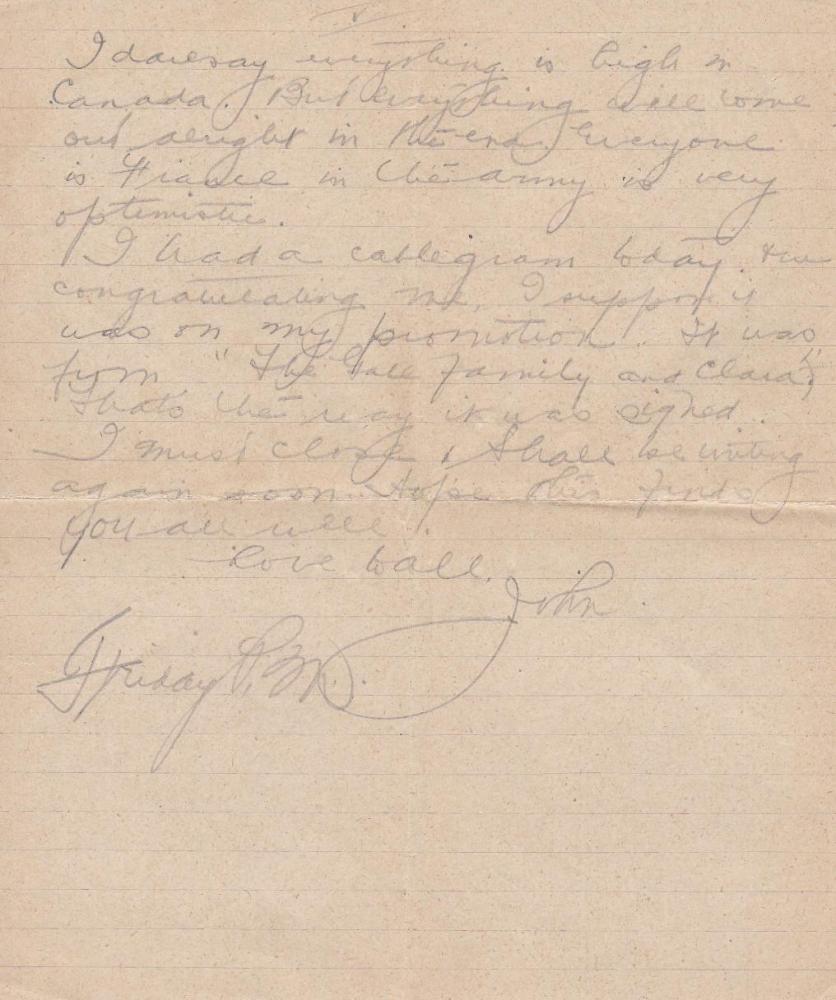 I daresay everything is high in
Canada. But everything will come
out alright in the end. Everyone
is France in the army is very
optimistic.
I had a cablegram today
congratulating me, I suppose it
was on my promotion. It was
from "The Gall family and Clara"
thats the way it was signed.
I must close, I shall be writing
again soon. Hope this finds
you all well.
Love to all.
John.
Friday P.M.